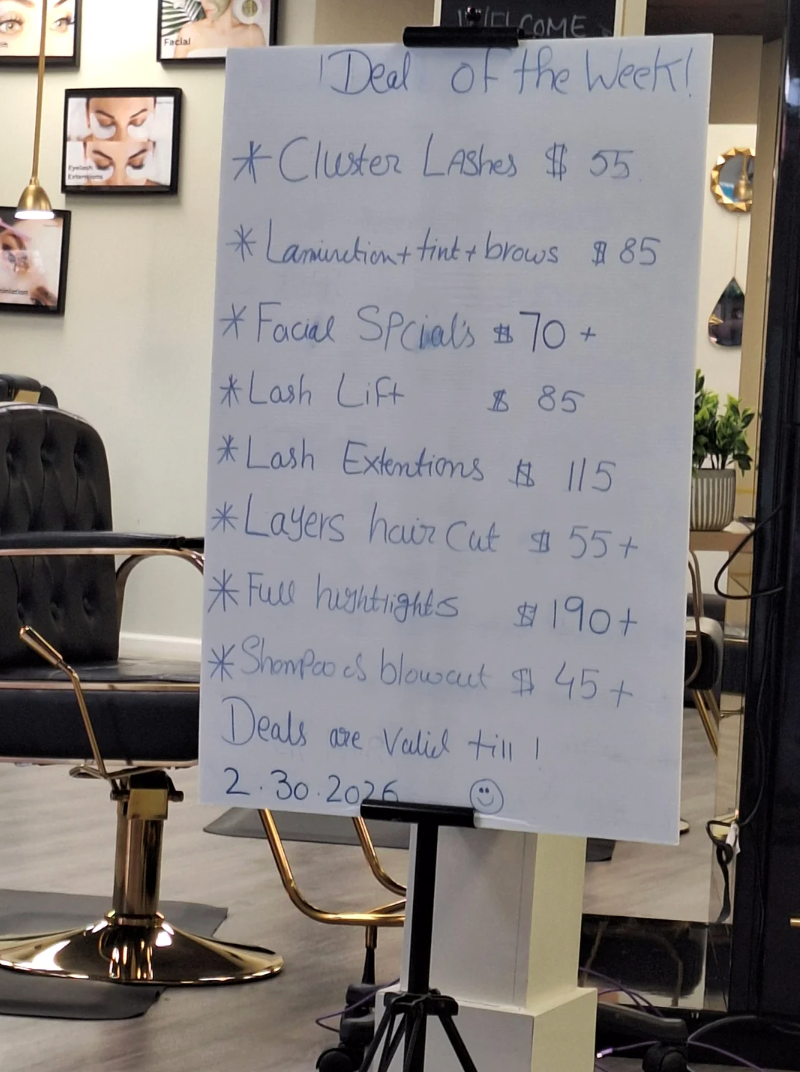 WELCOME
Facial
Eyelash
Extensions
Deal of the Week!
* Cluster Lashes $ 55
* Laminction + tint + brows $ 85
* Facial SPcial's $ 70 +
* Lash Lift $ 85
* Lash Extentions $ 115
* Layers hair cut $ 55 +
* Full hightlights $ 190 +
* Shampoo & blowout $ 45 +
Deals are Valid till !
2.30.2026